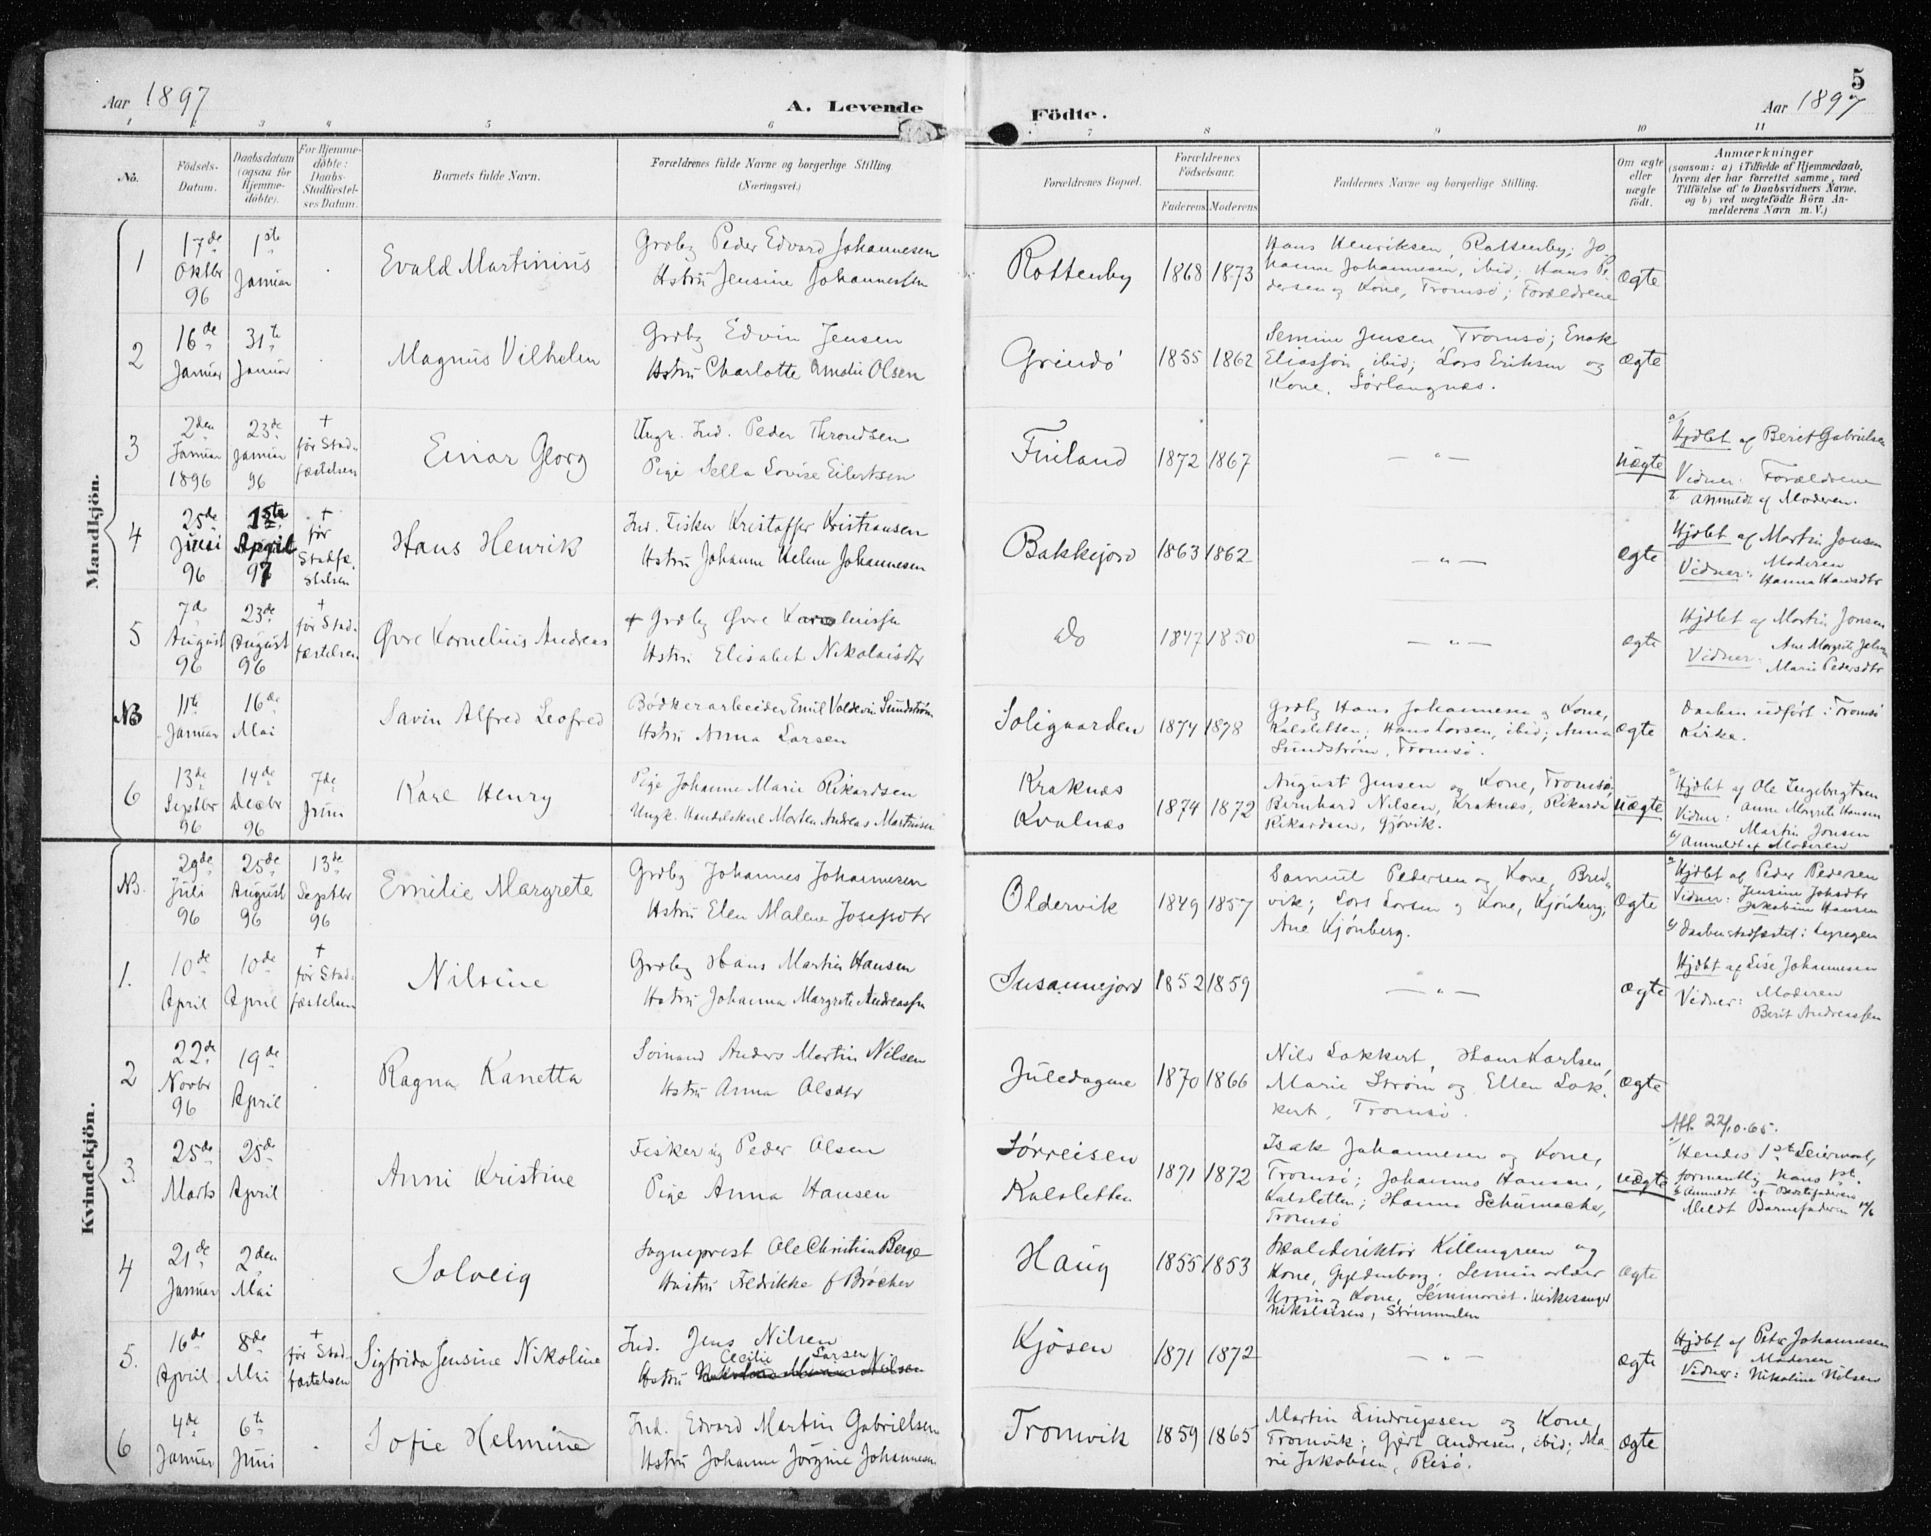 Aar 1897
A. Levende
Födte.
Aar 1897
5
1 2 3 4 5 6 7 8 9 10 11
No.
Födsels-
Datum.
Daabsdatum
(ogsaa for
Hjemme-
döbte).
For Hjemme-
döbte:
Daabs-
Stadfæstel-
ses Datum.
Barnets fulde Navn.
Forældrenes fulde Navne og borgerlige Stilling
(Næringsvei.)
Forældrenes Bopæl.
Forældrenes
Födselsaar.
Faderens
Moderens
Faddernes Navne og borgerlige Stilling.
Om ægte
eller
uægte
födt.
Anmærkninger
(saasom: a) i Tilfælde af Hjemmedaab,
hvem der har forrettet samme, med
Tilföielse af to Daabsvidners Navne,
og b) ved uægtefödte Börn An-
melderens Navn m. V.)
Mandkjön.
1
17de
Oktbr
96
1ste
Januar
Evald Martinius
Grdbg Peder Edvard Johannesen
Hstru Jensine Johannessen
Rottenby
1868
1873
Hans Henriksen, Rottenby; Jo-
hanna Johannesen, ibid; Hans Pe-
dersen og Kone, Tromsø; Forældrene
ægte
2
16de
Januar
31te
Januar
Magnus Vilhelm
Grdbg Edvin Jensen
Hstru Charlotte Amalie Olsen
Grindø
1855
1862
Semine Jensen, Tromsø; Enok
Eliassen, ibid; Lars Eriksen og
Kone, Sørlangnæs.
ægte
3
2den
Januar
1896
23de
Januar
96
+
før Stad-
fæstelsen
Einar Georg
Ungk. Ind. Peder Throndsen
Pige Sella Lovise Eilertsen
Finland
1872
1867
— „ —
uægte
a/ Hjdbt af Berit Gabrielsen
Vidner: Forældrene
b. Anmeldt af Moderen.
4
25de
Juni
96
1ste
April
97
+
før
Stadfæ-
stelsen
Hans Henrik
Ind. Fisker Kristoffer Kristiansen
Hstru Johanne Helene Johannesen
Bakkejord
1863
1862
— „ —
ægte
Hjdbt af Martin Jonsen
Vidner: Moderen
Hanna Hansdtr
5
7de
August
96
23de
August
96
+
før Stad-
fæstelsen
Øvre Kornelius Andreas
+ Grdbg Øvre Kornelinssen
Hstru Elisabet Nikolaisdtr
Do
1847
1850
— „ —
ægte
Hjdbt af Martin Jonsen
Vidner: Ane Margrete
Marie Pedersdtr
NB
11te
Januar
16de
Mai
Savin Alfred Leofred
Bødkerarbeider Emil Valdevin Sundstrøm
Hstru Anna Larsen
Soligaarden
1874
1878
Grdbg Hans Johannesen og Kone,
Kalsletten; Hans Larsen, ibid; Anna
Sundstrøm, Tromsø.
ægte
Daaben udført i Tromsø
Kirke.
6
13de
Septbr
96
14de
Decbr
96
7de
Juni
Karl Henry
Pige Johanne Marie Rikardsen
Ungk. Handelskarl Morten Andreas Martinsen
Kraknæs
Kvalnæs
1874
1872
August Jensen og Kone, Tromsø,
Bernhard Nilsen, Kraknæs, Rikarda
Rikardsen, Gjøvik.
uægte
a/ Hjdbt af Ole Ingebrigtsen
Vidner: Anne Margrete Hansen
Martin Jonsen
b/ Anmeldt af Moderen
Kvindekjön.
NB.
29de
Juli
96
25de
August
96
13de
Septbr
96
Emilie Margrete
Grdbg Johannes Johannesen
Hstru Elen Malene Josefsdtr
Oldervik
1849
1857
Samuel Pedersen og Kone, Bred-
vik; Lars Larsen og Kone, Kjønberg;
Ane Kjønberg.
ægte
a/ Hjdbt af Peder Pedersen
Vidner: Jensine Johsdtr
Jakobine Hansen
b/ Daaben stadfæstet i Lyngen
1.
10de
April
10de
April
+
før Stad-
fæstelsen
Nilsine
Grdbg Hans Martin Hansen
Hstru Johanna Margrete Andreassen
Susannejord
1852
1859
— „ —
ægte
Hjdbt af Lise Johannesen
Vidner: Moderen
Berit Andreassen
2
22de
Novbr
96
19de
April
Ragna Kanetta
Sømand Anders Martin Nilsen
Hstru Anna Olsdtr
Juledagene
1870
1866
Nils Lakkert, Hans Karlsen,
Marie Strøm og Ellen Lak-
kert, Tromsø.
ægte
3
25de
Marts
25de
April
Anni Kristine
Fisker ug Peder Olsen
Pige Anna Hansen
Sørreisen
Kalsletten
1871
1872
Isak Johannesen og Kone,
Tromsø; Johannes Hansen,
Kalsletten; Hanna Schumacher,
Tromsø
uægte
Att. 22/10-65.
a/ Hendes 1st Leiermaal,
formentlig hans 1st.
b/ Anmeldt af
Meldt Barnefaderen
4
21de
Januar
2den
Mai
Solveig
Sogneprest Ole Christian Berge
Hustru Fredrikke f Brøcher
Haug
1855
1853
Skoledirektør Killengreen og
Kone, Gyldenborg; Seminarlærer
og Kone, Seminariet. Kirkesanger
Nikolaisen, Strømmelen
ægte
5.
16de
April
8de
Mai
+
før Stad-
fæstelsen
Sigfrida Jensine Nikoline
Ind. Jens Nilsen
Cecilie Larsen
Hstru
Kjøsen
1871
1872
— „ —
ægte
Hjdbt af Peter Johannesen
Vidner: Moderen
Nikoline Nilsen
6
4de
Januar
6te
Juni
Sofie Helmine
Ind. Edvard Martin Gabrielsen
Hstru Johanna Jørgine Johannesen
Tromvik
1859
1865
Martin Lindrupsen og Kone,
Tromvik; Gjert Andresen, ibid; Ma-
rie Jakobsen, Risø.
ægte